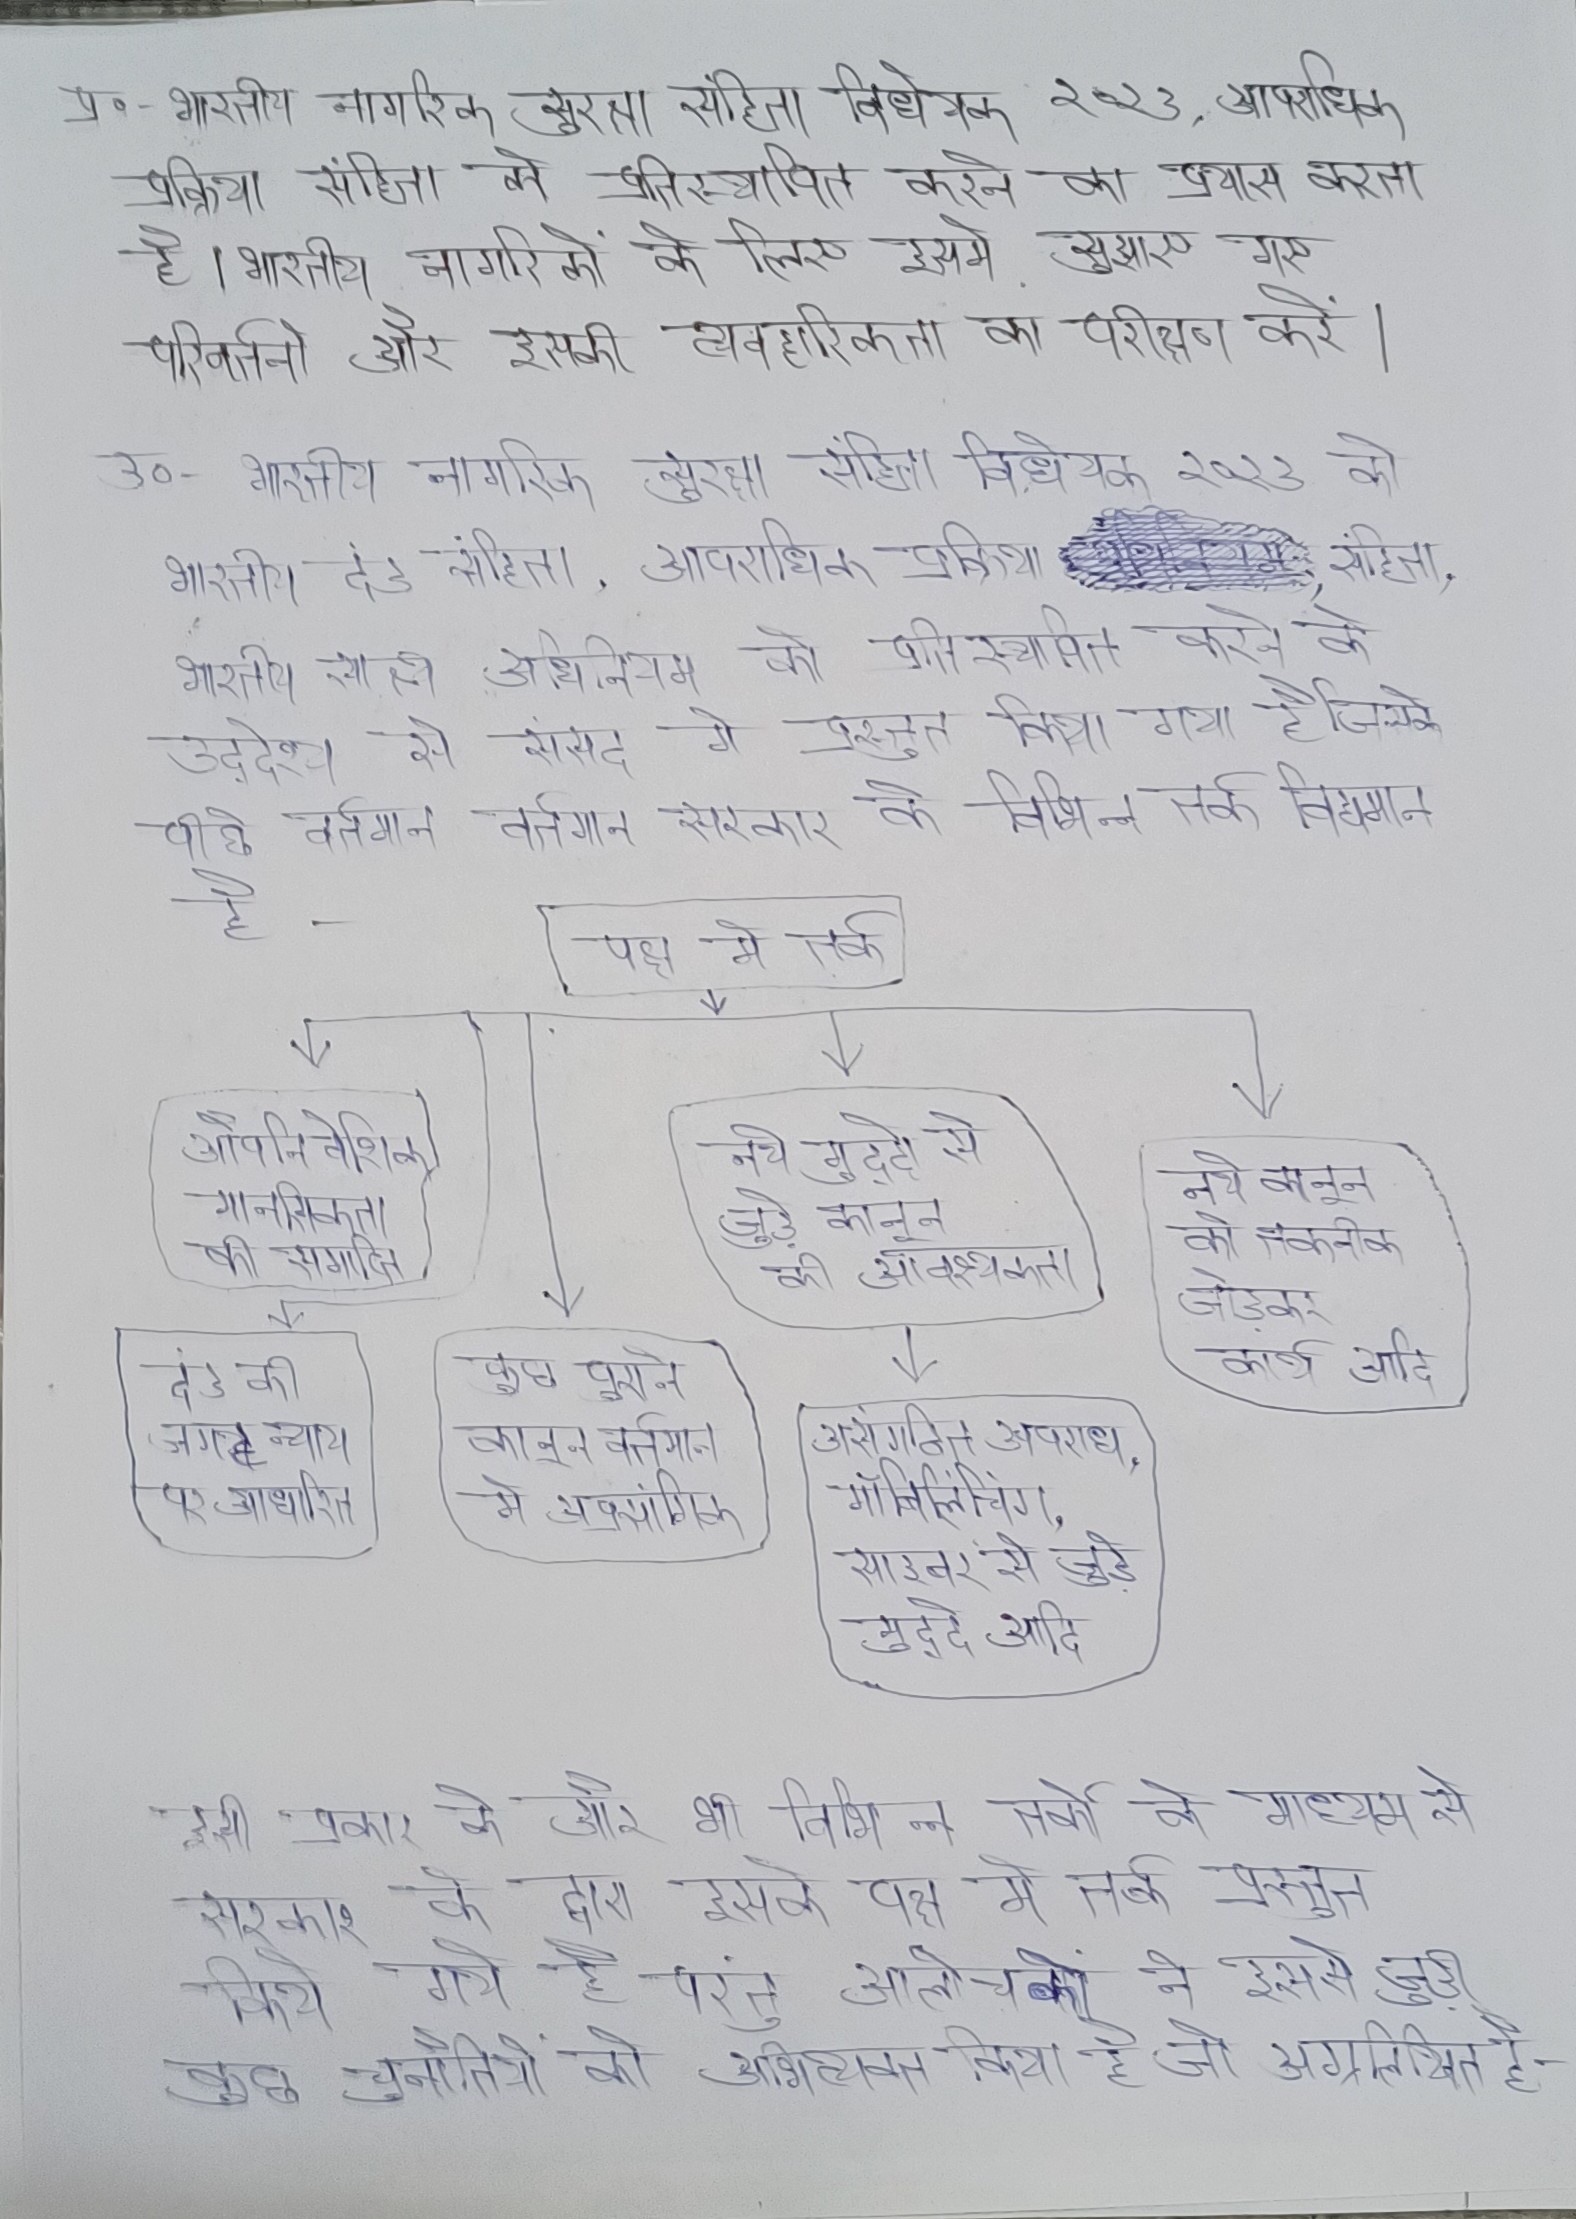 प्र०- भारतीय नागरिक सुरक्षा संहिता विधेयक २०२३, आपराधिक
प्रक्रिया संहिता को प्रतिस्थापित करने का प्रयास करता
है। भारतीय नागरिकों के लिए इसमे सुझाए गए
परिवर्तनो और इसकी व्यवहारिकता का परीक्षण करें।
उ०- भारतीय नागरिक सुरक्षा संहिता विधेयक २०२३ को
भारतीय दंड संहिता, आपराधिक प्रक्रिया संहिता,
भारतीय साक्ष्य अधिनियम को प्रतिस्थापित करने के
उद्देश्य से संसद मे प्रस्तुत किया गया है जिसके
पीछे वर्तमान वर्तमान सरकार के विभिन्न तर्क विद्यमान
है -
पक्ष मे तर्क
औपनिवेशिक
मानसिकता
की समाप्ति
दंड की
जगह न्याय
पर आधारित
कुछ पुराने
कानून वर्तमान
मे अप्रसांगिक
नये मुद्दो से
जुड़े कानून
की आवश्यकता
असंगठित अपराध,
मॉबलिंचिंग,
साइबर से जुड़े
मुद्दे आदि
नये कानून
को तकनीक
जोड़कर
कार्य आदि
इसी प्रकार के और भी विभिन्न तर्को के माध्यम से
सरकार के द्वारा इसके पक्ष मे तर्क प्रस्तुत
किये गये है परंतु आलोचकों ने इससे जुड़ी
कुछ चुनौतियों को अभिव्यक्त किया है जो अग्रलिखित है-